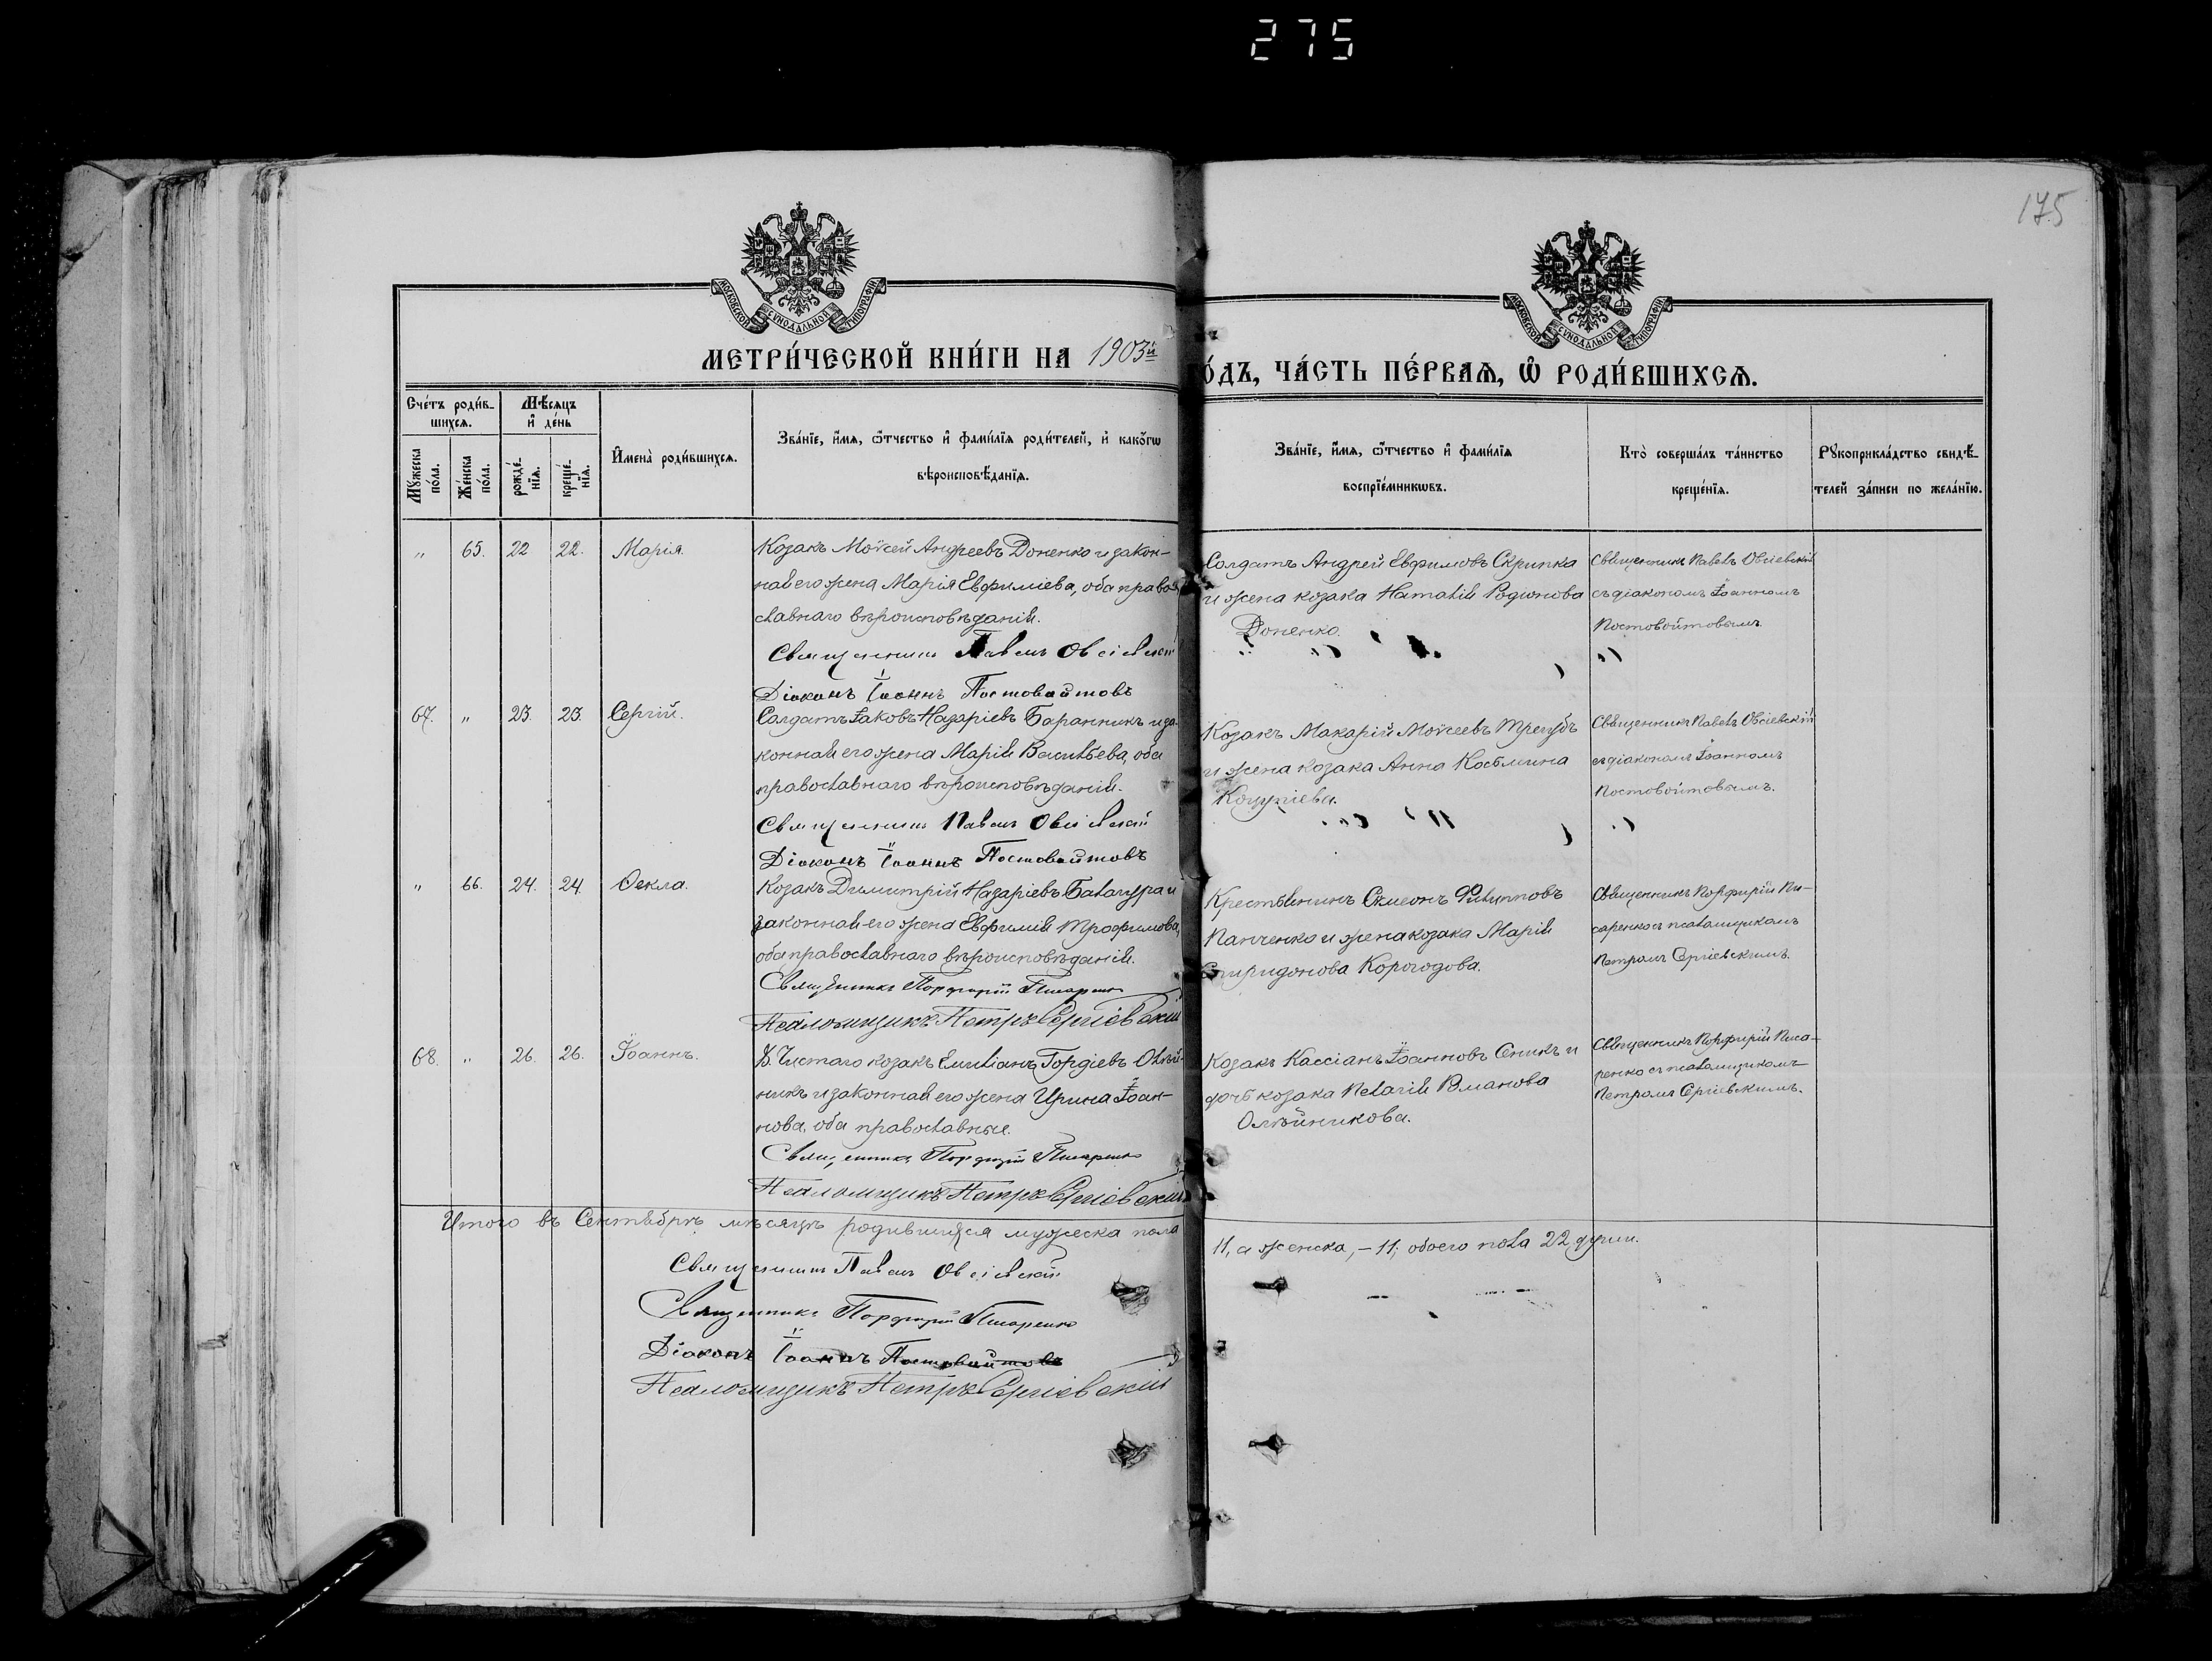 275
175
МОСКОВСКОЙ СѴНОДАЛЬНОЙ ТИПОГРАФІИ
МОСКОВСКОЙ СѴНОДАЛЬНОЙ ТИПОГРАФІИ
МЕТРИ́ЧЕСКОЙ КНИ́ГИ НА 1903й
О́ДЪ, ЧА́СТЬ ПЕ́РВАѦ, Ѽ РОДИ́ВШИХСѦ.
Сче́тъ роди́в-
шихсѧ.
Мѣ́сѧцъ
и҆ де́нь
Мꙋ́жеска
по́ла.
Же́нска
по́ла.
рожде́-
нїѧ.
креще́-
нїѧ.
И҆мена̀ роди́вшихсѧ.
Зва́нїе, и҆́мѧ, ѻ҆́тчество и҆ фамѝлїѧ роди́телей, и҆ како́гѡ
вѣроисповѣ́данїѧ.
Зва́нїе, и҆́мѧ, ѻ҆́тчество и҆ фамѝлїѧ
воспрїе́мникѡвъ.
Кто̀ соверша́лъ та́инство
креще́нїѧ.
Рꙋкоприкла́дство свидѣ́-
телей за́писи по жела́нїю.
" 65. 22 22. Марія.
Козакъ Моѵсей Андреевъ Доненко и закон-
ная его жена Марія Евфиміева, оба право-
славнаго вѣроисповѣданія.
Священникъ Павелъ Овсіевскій
Діаконъ Іоаннъ Постовойтовъ
Солдатъ Андрей Евфимовъ Скрипка
и жена козака Наталія Родіонова
Доненко.
Священникъ Павелъ Овсіевскій
съ діакономъ Іоанномъ
Постовойтовымъ.
67. " 23. 23. Сергій.
Солдатъ Іаковъ Назаріевъ Баранникъ и за-
конная его жена Марія Васильева, оба
православнаго вѣроисповѣданія.
Священникъ Павелъ Овсіевскій
Діаконъ Іоаннъ Постовойтовъ
Козакъ Макарій Моѵсеевъ Трегубъ
и жена козака Анна Косьмина
Коцупіева.
Священникъ Павелъ Овсіевскій
съ діакономъ Іоанномъ
Постовойтовымъ.
" 66. 24. 24. Ѳекла.
Козакъ Димитрій Назаріевъ Балацура и
законная его жена Евфимія Трофимова,
оба православнаго вѣроисповѣданія.
Священникъ Порфирій Писаренко
Псаломщикъ Петръ Сергіевскій
Крестьянинъ Симеонъ Филипповъ
Панченко и жена козака Марія
Спиридонова Корогодова.
Священникъ Порфирій Пи-
саренко съ псаломщикомъ
Петромъ Сергіевскимъ.
68. " 26. 26. Іоаннъ.
Х. Чистаго козакъ Емиліанъ Гордіевъ Олѣй-
никъ и законная его жена Ирина Іоан-
нова, оба православные.
Священникъ Порфирій Писаренко
Псаломщикъ Петръ Сергіевскій
Козакъ Кассіанъ Іоанновъ Сеникъ и
дочь козака Пелагія Романова
Олѣйникова.
Священникъ Порфирій Писа-
ренко съ псаломщикомъ
Петромъ Сергіевскимъ.
Итого въ Сентябрѣ мѣсяцѣ родившихся мужеска пола
11, а женска, – 11; обоего пола 22 души.
Священникъ Павелъ Овсіевскій
Священникъ Порфирій Писаренко
Діаконъ Іоаннъ Постовойтовъ
Псаломщикъ Петръ Сергіевскій